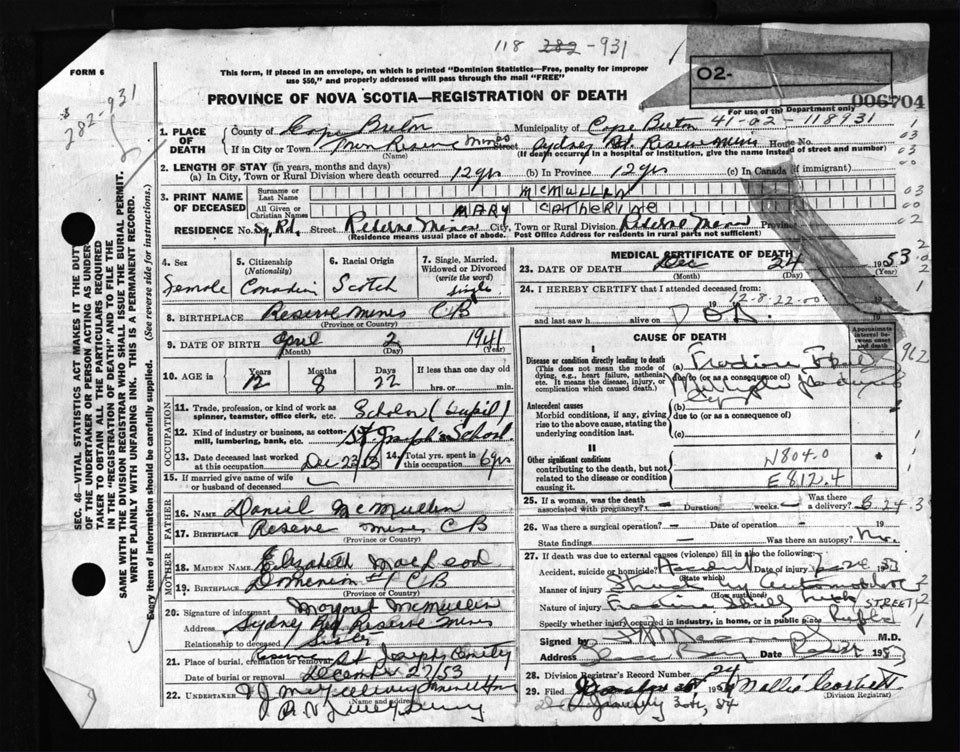 118 282-931
FORM 6
This form, if placed in an envelope, on which is printed "Dominion Statistics—Free, penalty for improper
use $50," and properly addressed will pass through the mail "FREE"
02-
PROVINCE OF NOVA SCOTIA—REGISTRATION OF DEATH
For use of the Department only
006704
282-931
41-02-118931
1. PLACE OF DEATH
County of Cape Breton Municipality of Cape Breton
If in City or Town Reserve Mines Street Sydney Rd. Reserve Mines House No.
(Name) (If death occurred in a hospital or institution, give the name instead of street and number)
2. LENGTH OF STAY (in years, months and days)
(a) In City, Town or Rural Division where death occurred 12 yrs (b) In Province 12 yrs (c) In Canada (if immigrant)
3. PRINT NAME OF DECEASED
Surname or Last Name McMULLIN
All Given or Christian Names MARY CATHERINE
RESIDENCE No. Sy. Rd. Street Reserve Mines City, Town or Rural Division Reserve Mines Province
(Residence means usual place of abode. Post Office Address for residents in rural parts not sufficient)
4. Sex Female
5. Citizenship (Nationality) Canadian
6. Racial Origin Scotch
7. Single, Married, Widowed or Divorced (write the word) Single
8. BIRTHPLACE Reserve Mines CB
(Province or Country)
9. DATE OF BIRTH April 2 1941
(Month) (Day) (Year)
10. AGE Years 12 Months 8 Days 22 If less than one day old
hrs. or min.
OCCUPATION
11. Trade, profession, or kind of work as spinner, teamster, office clerk, etc. Scholar (Pupil)
12. Kind of industry or business, as cotton-mill, lumbering, bank, etc. St. Joseph's School
13. Date deceased last worked at this occupation Dec 23/53
14. Total yrs. spent in this occupation 6 yrs
15. If married give name of wife or husband of deceased
FATHER
16. NAME Daniel McMullin
17. BIRTHPLACE Reserve Mines CB
(Province or Country)
MOTHER
18. MAIDEN NAME Elizabeth MacLeod
19. BIRTHPLACE Dominion #1 CB
(Province or Country)
20. Signature of informant Margaret McMullin
Address Sydney Rd Reserve Mines
Relationship to deceased Sister
21. Place of burial, cremation or removal St Josephs Cemetery
Date of burial or removal December 27/53
22. UNDERTAKER
(Name and address)
MEDICAL CERTIFICATE OF DEATH
23. DATE OF DEATH Dec 24 1953
(Month) (Day) (Year)
24. I HEREBY CERTIFY that I attended deceased from:
12-8-22-00
and last saw h alive on D O A.
CAUSE OF DEATH
Approximate interval between onset and death
I
Disease or condition directly leading to death
(This does not mean the mode of dying, e.g., heart failure, asthenia, etc. It means the disease, injury, or complication which caused death.)
(a) Fracture Skull
due to (or as a consequence of)
Antecedent causes
Morbid conditions, if any, giving rise to the above cause, stating the underlying condition last.
(b)
due to (or as a consequence of)
(c)
II
Other significant conditions
contributing to the death, but not related to the disease or condition causing it.
N804.0
E812.4
25. If a woman, was the death associated with pregnancy? Duration weeks Was there a delivery?
26. Was there a surgical operation? Date of operation 19
State findings Was there an autopsy? No.
27. If death was due to external causes (violence) fill in also the following:
Accident, suicide or homicide? Accident Date of injury Dec 24 1953
(State which)
Manner of injury Struck by automobile
(How sustained)
Nature of injury Fracture Skull STREET
Specify whether injury occurred in industry, in home, or in public place Public
Signed by M.D.
Address Glace Bay
28. Division Registrar's Record Number 24
29. Filed Mollie Corbett
(Division Registrar)
January 30th, 54
SEC. 46—VITAL STATISTICS ACT MAKES IT THE DUTY
OF THE UNDERTAKER OR PERSON ACTING AS UNDERTAKER TO OBTAIN ALL THE PARTICULARS REQUIRED
IN THE "REGISTRATION OF DEATH" AND TO FILE THE
SAME WITH THE DIVISION REGISTRAR WHO SHALL ISSUE THE BURIAL PERMIT.
WRITE PLAINLY WITH UNFADING INK. THIS IS A PERMANENT RECORD.
Every item of information should be carefully supplied. (See reverse side for instructions.)